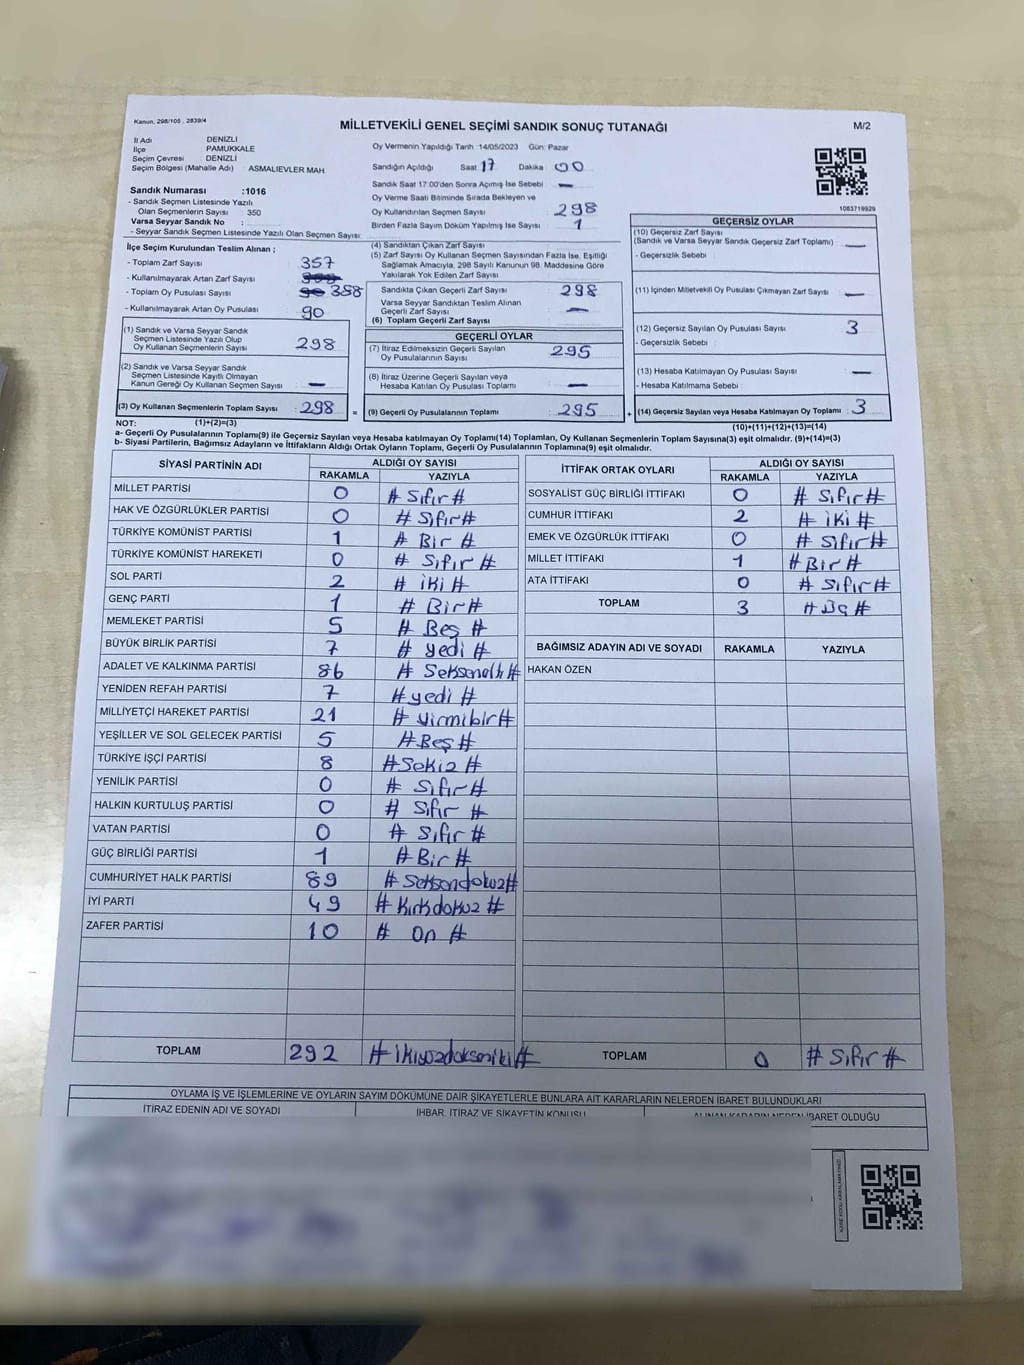 Kanun, 298/105 , 2839/4
MİLLETVEKİLİ GENEL SEÇİMİ SANDIK SONUÇ TUTANAĞI
M/2
İl Adı DENİZLİ
İlçe PAMUKKALE
Seçim Çevresi : DENİZLİ
Seçim Bölgesi (Mahalle Adı) ASMALIEVLER MAH.
Sandık Numarası :1016
- Sandık Seçmen Listesinde Yazılı
Olan Seçmenlerin Sayısı : 350
Varsa Seyyar Sandık No :
- Seyyar Sandık Seçmen Listesinde Yazılı Olan Seçmen Sayısı:
Oy Vermenin Yapıldığı Tarih :14/05/2023 Gün: Pazar
Sandığın Açıldığı Saat 17 Dakika 00
Sandık Saat 17:00'den Sonra Açımış İse Sebebi : —
Oy Verme Saati Bitiminde Sırada Bekleyen ve
Oy Kullandırılan Seçmen Sayısı : 298
Birden Fazla Sayım Döküm Yapılmış İse Sayısı : 1
1063719929
İlçe Seçim Kurulundan Teslim Alınan ;
- Toplam Zarf Sayısı : 357
- Kullanılmayarak Artan Zarf Sayısı
- Toplam Oy Pusulası Sayısı 388
- Kullanılmayarak Artan Oy Pusulası : 90
(1) Sandık ve Varsa Seyyar Sandık
Seçmen Listesinde Yazılı Olup
Oy Kullanan Seçmenlerin Sayısı : 298
(2) Sandık ve Varsa Seyyar Sandık
Seçmen Listesinde Kayıtlı Olmayan
Kanun Gereği Oy Kullanan Seçmen Sayısı : —
(3) Oy Kullanan Seçmenlerin Toplam Sayısı : 298 =
(4) Sandıktan Çıkan Zarf Sayısı
(5) Zarf Sayısı Oy Kullanan Seçmen Sayısından Fazla İse, Eşitliği
Sağlamak Amacıyla, 298 Sayılı Kanunun 98. Maddesine Göre
Yakılarak Yok Edilen Zarf Sayısı :
Sandıkta Çıkan Geçerli Zarf Sayısı : 298
Varsa Seyyar Sandıktan Teslim Alınan
Geçerli Zarf Sayısı : —
(6) Toplam Geçerli Zarf Sayısı :
GEÇERLİ OYLAR
(7) İtiraz Edilmeksizin Geçerli Sayılan
Oy Pusulalarının Sayısı : 295
(8) İtiraz Üzerine Geçerli Sayılan veya
Hesaba Katılan Oy Pusulası Toplamı : —
(9) Geçerli Oy Pusulalarının Toplamı : 295 +
GEÇERSİZ OYLAR
(10) Geçersiz Zarf Sayısı
(Sandık ve Varsa Seyyar Sandık Geçersiz Zarf Toplamı) : —
- Geçersizlik Sebebi :
(11) İçinden Milletvekili Oy Pusulası Çıkmayan Zarf Sayısı : —
(12) Geçersiz Sayılan Oy Pusulası Sayısı : 3
- Geçersizlik Sebebi :
(13) Hesaba Katılmayan Oy Pusulası Sayısı : —
- Hesaba Katılmama Sebebi :
(14) Geçersiz Sayılan veya Hesaba Katılmayan Oy Toplamı : 3
NOT: (1)+(2)=(3) (10)+(11)+(12)+(13)=(14)
a- Geçerli Oy Pusulalarının Toplamı(9) ile Geçersiz Sayılan veya Hesaba katılmayan Oy Toplamı(14) Toplamları, Oy Kullanan Seçmenlerin Toplam Sayısına(3) eşit olmalıdır. (9)+(14)=(3)
b- Siyasi Partilerin, Bağımsız Adayların ve İttifakların Aldığı Ortak Oyların Toplamı, Geçerli Oy Pusulalarının Toplamına(9) eşit olmalıdır.
SİYASİ PARTİNİN ADI ALDIĞI OY SAYISI
RAKAMLA YAZIYLA
MİLLET PARTİSİ 0 # Sıfır #
HAK VE ÖZGÜRLÜKLER PARTİSİ 0 # Sıfır #
TÜRKİYE KOMÜNİST PARTİSİ 1 # Bir #
TÜRKİYE KOMÜNİST HAREKETİ 0 # Sıfır #
SOL PARTİ 2 # iki #
GENÇ PARTİ 1 # Bir #
MEMLEKET PARTİSİ 5 # Beş #
BÜYÜK BİRLİK PARTİSİ 7 # yedi #
ADALET VE KALKINMA PARTİSİ 86 # Seksenaltı #
YENİDEN REFAH PARTİSİ 7 # yedi #
MİLLİYETÇİ HAREKET PARTİSİ 21 # yirmibir #
YEŞİLLER VE SOL GELECEK PARTİSİ 5 # Beş #
TÜRKİYE İŞÇİ PARTİSİ 8 # Sekiz #
YENİLİK PARTİSİ 0 # Sıfır #
HALKIN KURTULUŞ PARTİSİ 0 # Sıfır #
VATAN PARTİSİ 0 # Sıfır #
GÜÇ BİRLİĞİ PARTİSİ 1 # Bir #
CUMHURİYET HALK PARTİSİ 89 # Seksendokuz #
İYİ PARTİ 49 # Kırkdokuz #
ZAFER PARTİSİ 10 # On #
TOPLAM 292 # ikiyüzdoksaniki #
İTTİFAK ORTAK OYLARI ALDIĞI OY SAYISI
RAKAMLA YAZIYLA
SOSYALİST GÜÇ BİRLİĞİ İTTİFAKI 0 # Sıfır #
CUMHUR İTTİFAKI 2 # iki #
EMEK VE ÖZGÜRLÜK İTTİFAKI 0 # Sıfır #
MİLLET İTTİFAKI 1 # Bir #
ATA İTTİFAKI 0 # Sıfır #
TOPLAM 3 # Üç #
BAĞIMSIZ ADAYIN ADI VE SOYADI RAKAMLA YAZIYLA
HAKAN ÖZEN
TOPLAM 0 # Sıfır #
OYLAMA İŞ VE İŞLEMLERİNE VE OYLARIN SAYIM DÖKÜMÜNE DAİR ŞİKAYETLERLE BUNLARA AİT KARARLARIN NELERDEN İBARET BULUNDUKLARI
İTİRAZ EDENİN ADI VE SOYADI İHBAR, İTİRAZ VE ŞİKAYETİN KONUSU ALINAN KARARIN NEDEN İBARET OLDUĞU